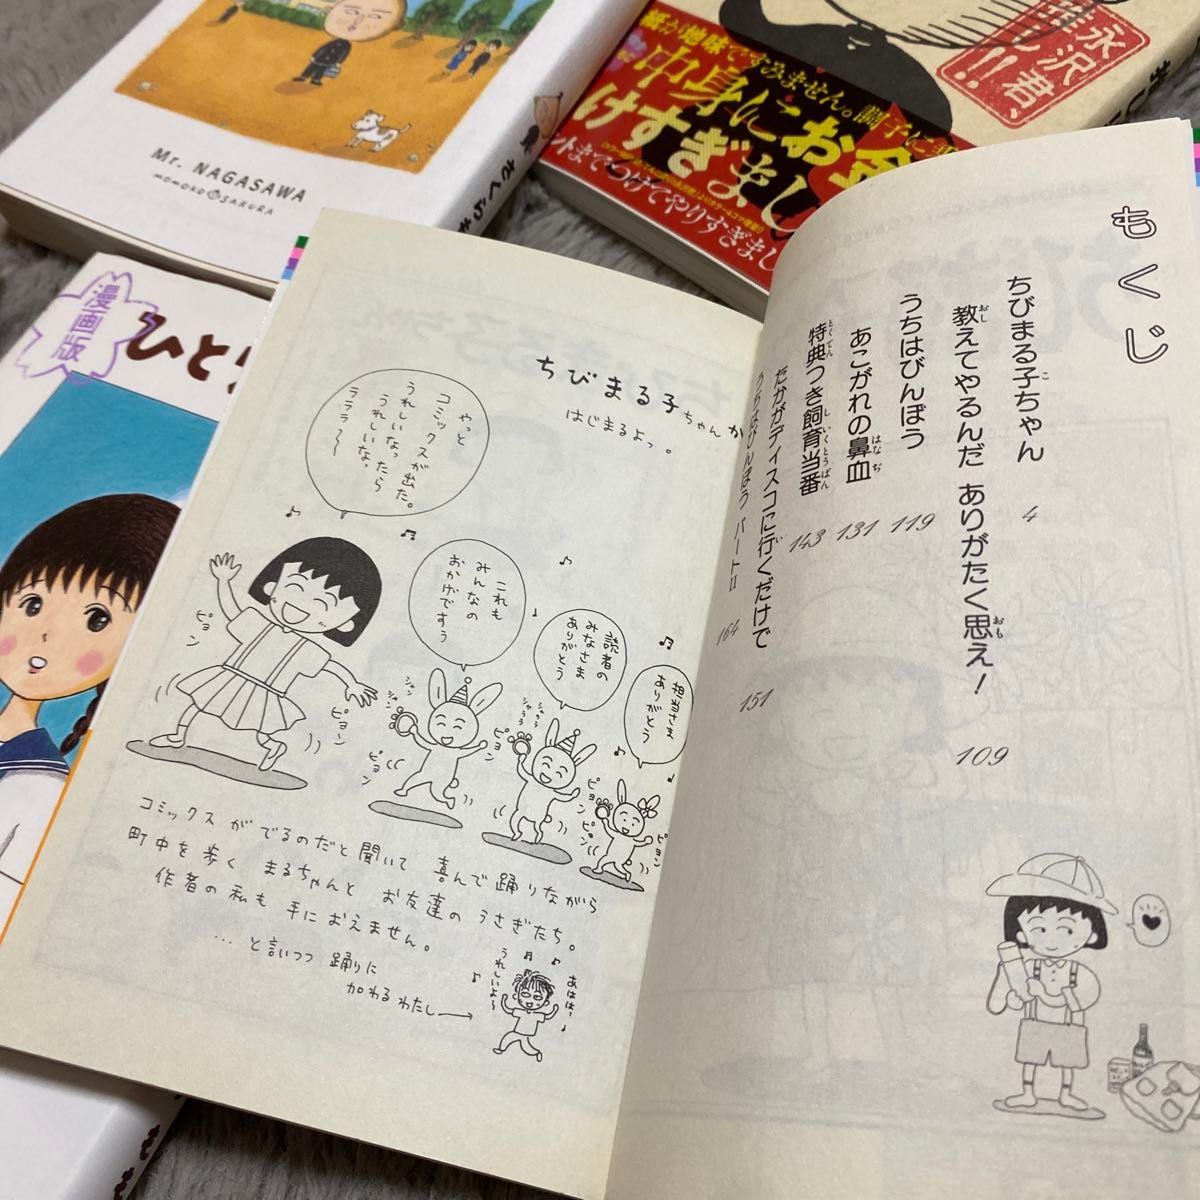 Mr. NAGASAWA
MOMOKO SAKURA
さくらも
永沢君、
紙が地味ですみません。調子に
中身にお金
けすぎまし
漫画版
ひと
もくじ
ちびまる子ちゃん
4
教えてやるんだ ありがたく思え！
109
うちはびんぼう
119
あこがれの鼻血
131
特典つき飼育当番
143
たかがディスコに行くだけで
151
うちはびんぼう パートII
164
ちびまる子ちゃんか
はじまるよっ。
やっと
コミックスが出た。
うれしいなったら
うれしいなっ
ラララ〜
これも
みんなの
おかげですう
読者の
みなさま
ありがとう
担当さま
ありがとう
ピョン
ピョン
ピョン
ピョン
ピョン
ピョン
コミックスがでるのだと聞いて 喜んで踊りながら
町中を歩く まるちゃんと お友達の うさぎたち。
作者の私も 手におえません。
…と言いつつ 踊りに
加わるわたし→
うれしいよ〜
あははっ